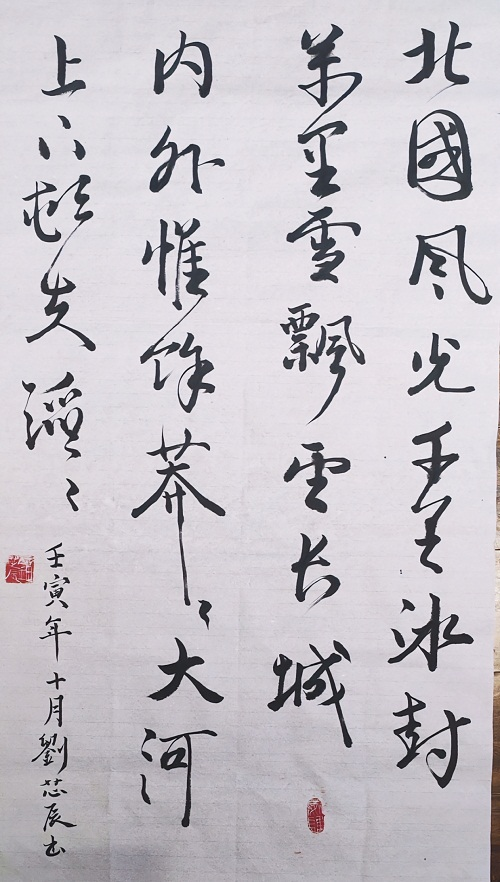 北國风光千里冰封
萬里雪飄望长城
内外惟馀莽〻大河
上下頓失滔〻
壬寅年十月劉芯辰书